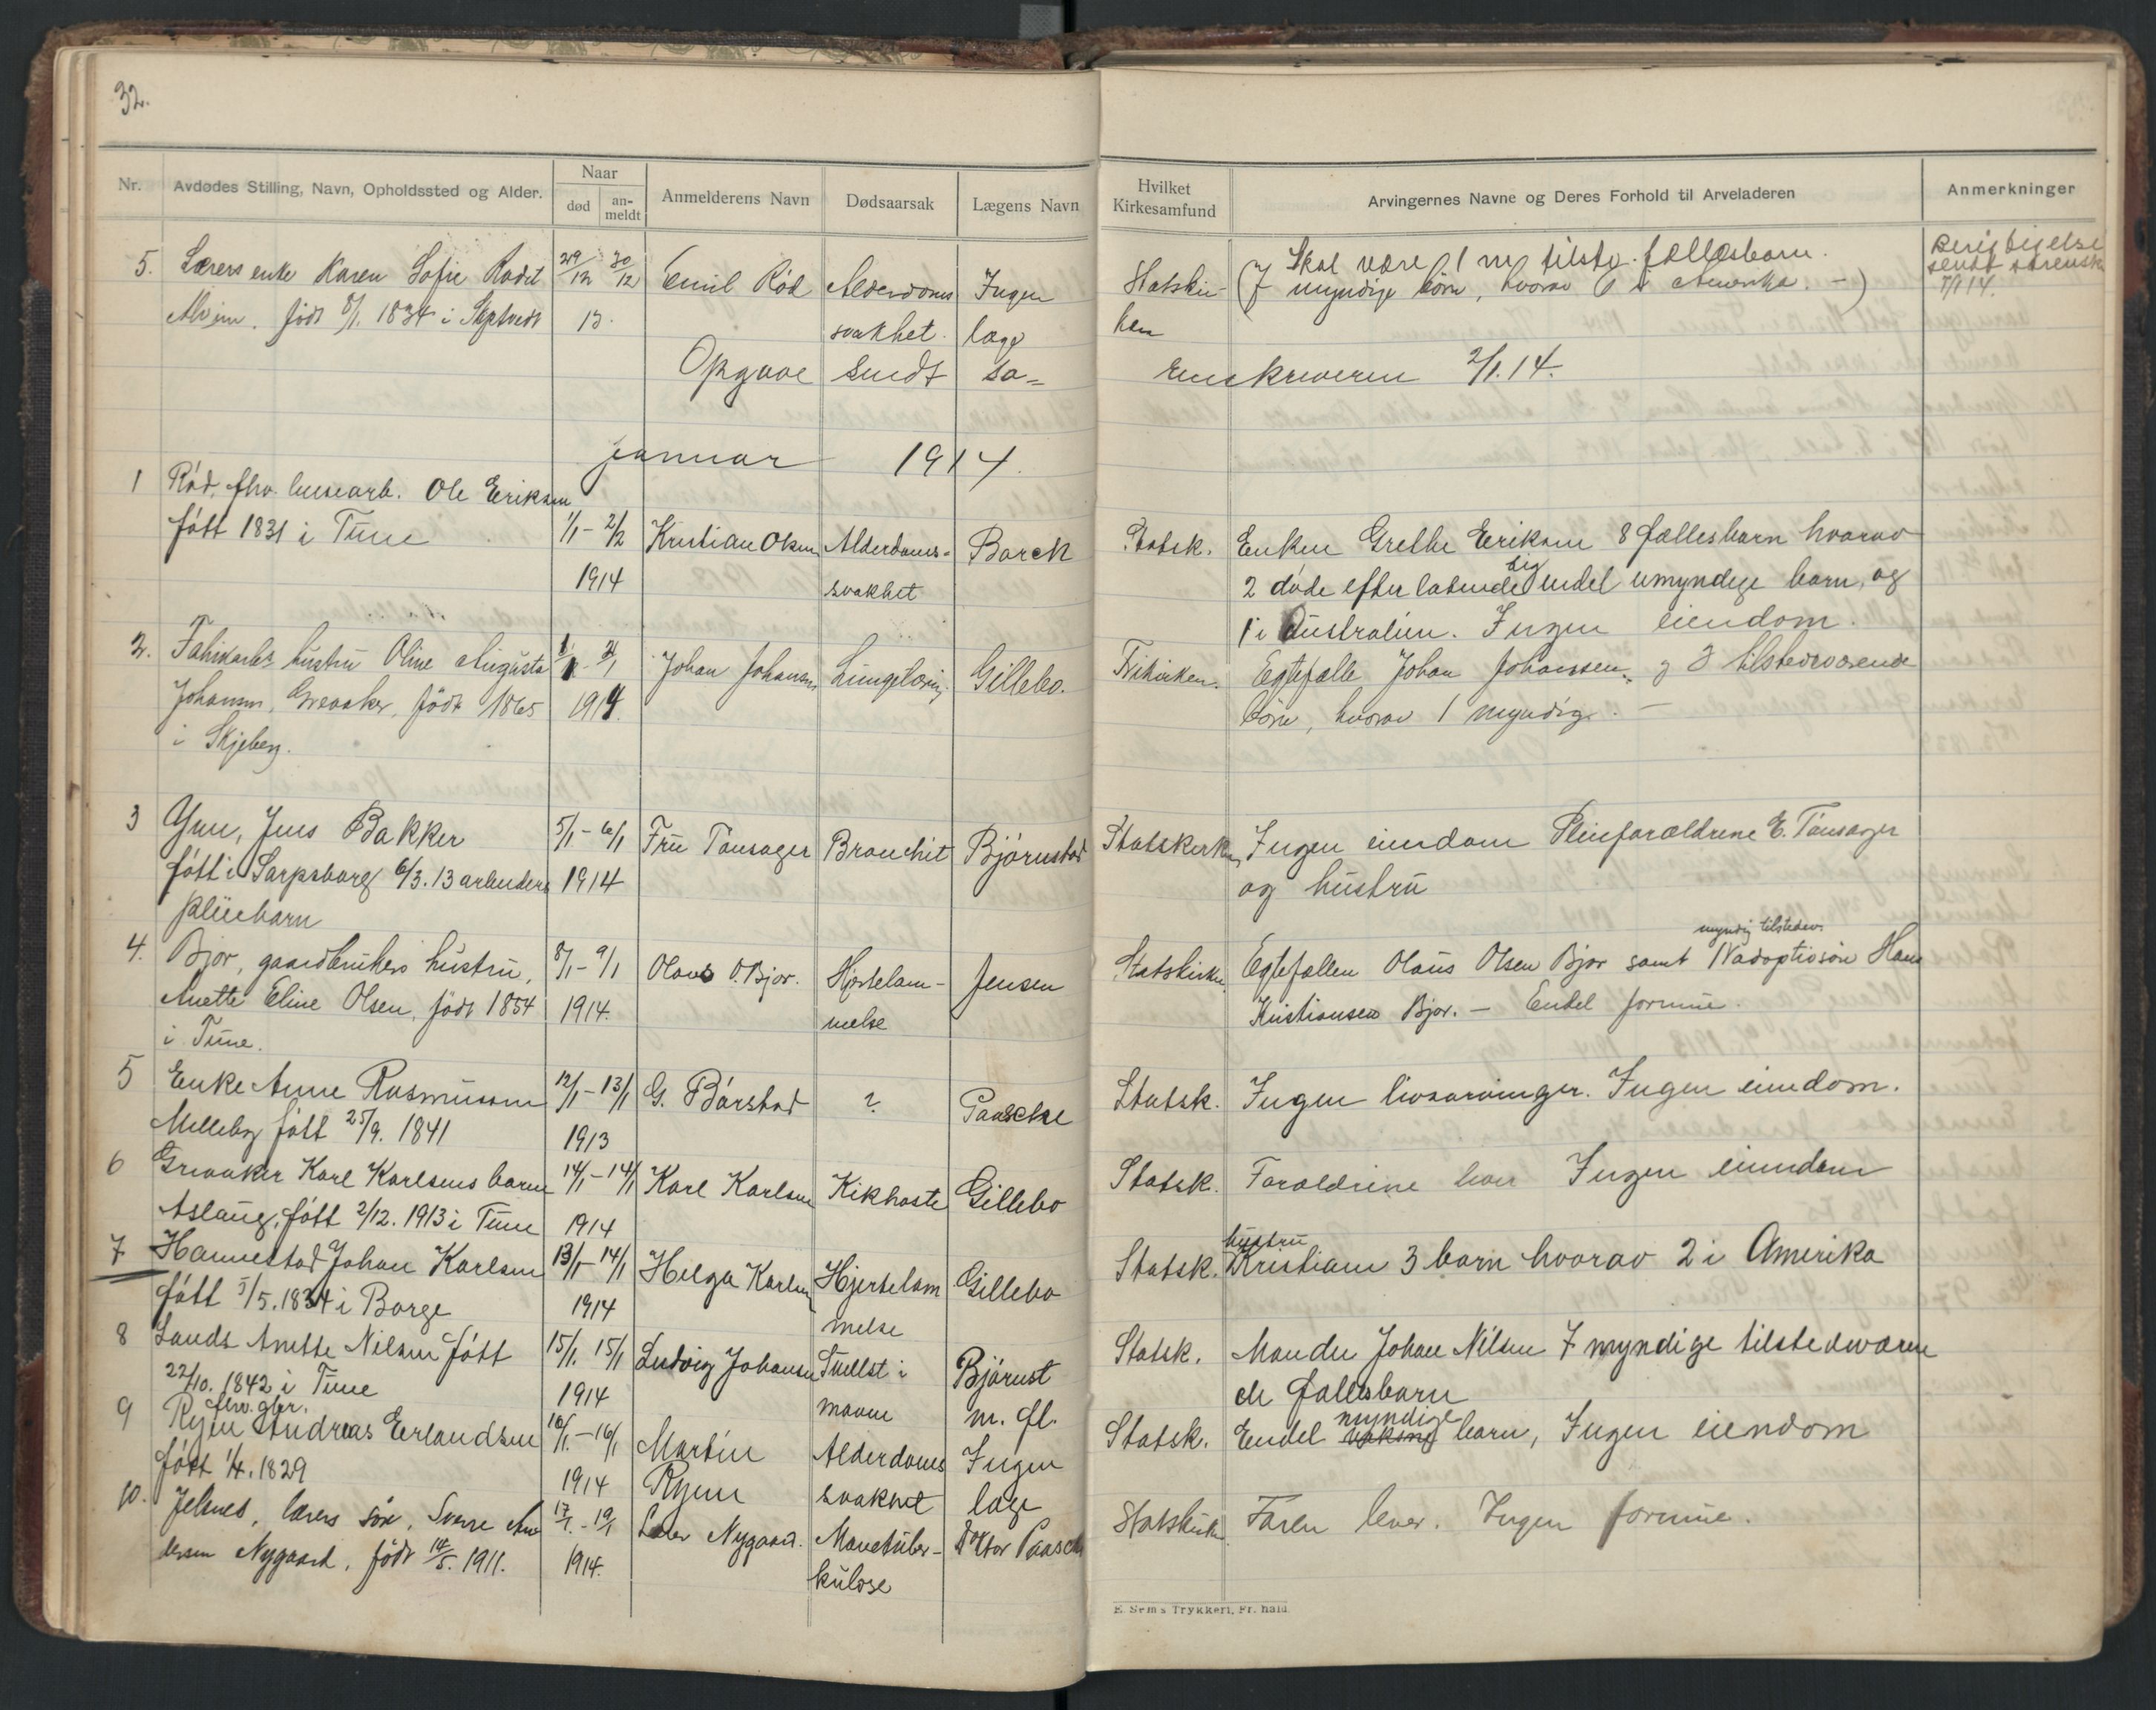 32.
Nr. Avdødes Stilling, Navn, Opholdssted og Alder. Naar død an-meldt Anmelderens Navn Dødsaarsak Lægens Navn Hvilket Kirkesamfund Arvingernes Navne og Deres Forhold til Arveladeren Anmerkninger
5. Lærers enke Karen Sofie 29/12 30/12 Emil Rød Alderdoms Ingen Statskir- Skal være 1 tilstv. fællesbarn.
Alvim. født 8/1. 1834 i Skptvedt 13. svakhet. læge ken (7 myndige børn, hvorav 6 i Amerika. —) sendt 7/1 14.
Opgave sendt so= renskriveren 2/1. 14.
Januar 1914.
1 Rød, fhv. brusearb. Ole Eriksen
født 1831 i Tune 1/1 - 2/2 Kristian Olsen Alderdoms- Borch Statsk. Enken Grethe Eriksen 8 fællesbarn hvorav
1914 svakhet 2 døde efterlatende sig endel umyndige barn, og
1 i Australien. Ingen eiendom.
2. Fabrikarb. hustru Oline Augusta Johan Johansen Lungetæring. Gillebo. Frikirken. Egtefælle Johan Johanssen og 3 tilstedeværende
Johansen, Greaaker, født 1865 1914. børn, hvorav 1 myndig. —
i Skjeberg.
3 Yven, Jens Bakker 5/1 - 6/1 Fru Tansager Bronchit Bjørnstad Statskirken Ingen eiendom Pleieforældrene E. Tansager
født i Sarpsborg 6/3. 13 arbeiders 1914 og hustru
pleiebarn
4. Bjor, gaardbrukers hustru, 8/1 - 9/1 Olaus O. Bjor. Hjertelam- Jensen Statskirken. Egtefællen Olaus Olsen Bjor samt 1 myndig tilstedev. adoptivsøn Hans
Anette Eline Olsen, født 1854 1914. melse Kristiansen Bjor. — Endel formue.
i Tune.
5 Enke Anne Rasmussen 12/1 - 13/1 G. Børstad ? Paasche Statsk. Ingen livsarvinger. Ingen eiendom.
Melleby født 25/9. 1841 1913
6 Greaaker Karl Karlsens barn 14/1 - 14/1 Karl Karlsen Kikhoste Gillebo Statsk. Forældrene lever Ingen eiendom
Aslaug, født 2/12. 1913 i Tune 1914
7 Hannestad Johan Karlsen 13/1 - 14/1 Helga Karlsen Hjertelam Gillebo Statsk. hustru Kristiane 3 barn hvorav 2 i Amerika
født 5/5. 1834 i Borge 1914 melse
8 Sands Anette Nilsen født 15/1. 15/1 Ludvig Johansen Svulst i Bjørnst Statsk. Manden Johan Nilsen 7 myndige tilstedeværen
22/10. 1842 i Tune 1914 maven m. fl. de fællesbarn
9 Ryen fhv. gbr. Andreas Erlandsen 16/1. - 16/1 Martin Alderdoms Ingen Statsk. Endel myndige barn, Ingen eiendom
født 1/4. 1829 1914 Ryen svakhet læge
10. Jelsnes, lærers søn, Sverre An 17/1. - 19/1 Lærer Nygaard. Mavetuber- Doktor Paasche Statskirken. Faren lever. Ingen formue.
dersen Nygaard, født 14/5. 1911. 1914. kulose
E. Sem's Trykkeri, Fr.hald.